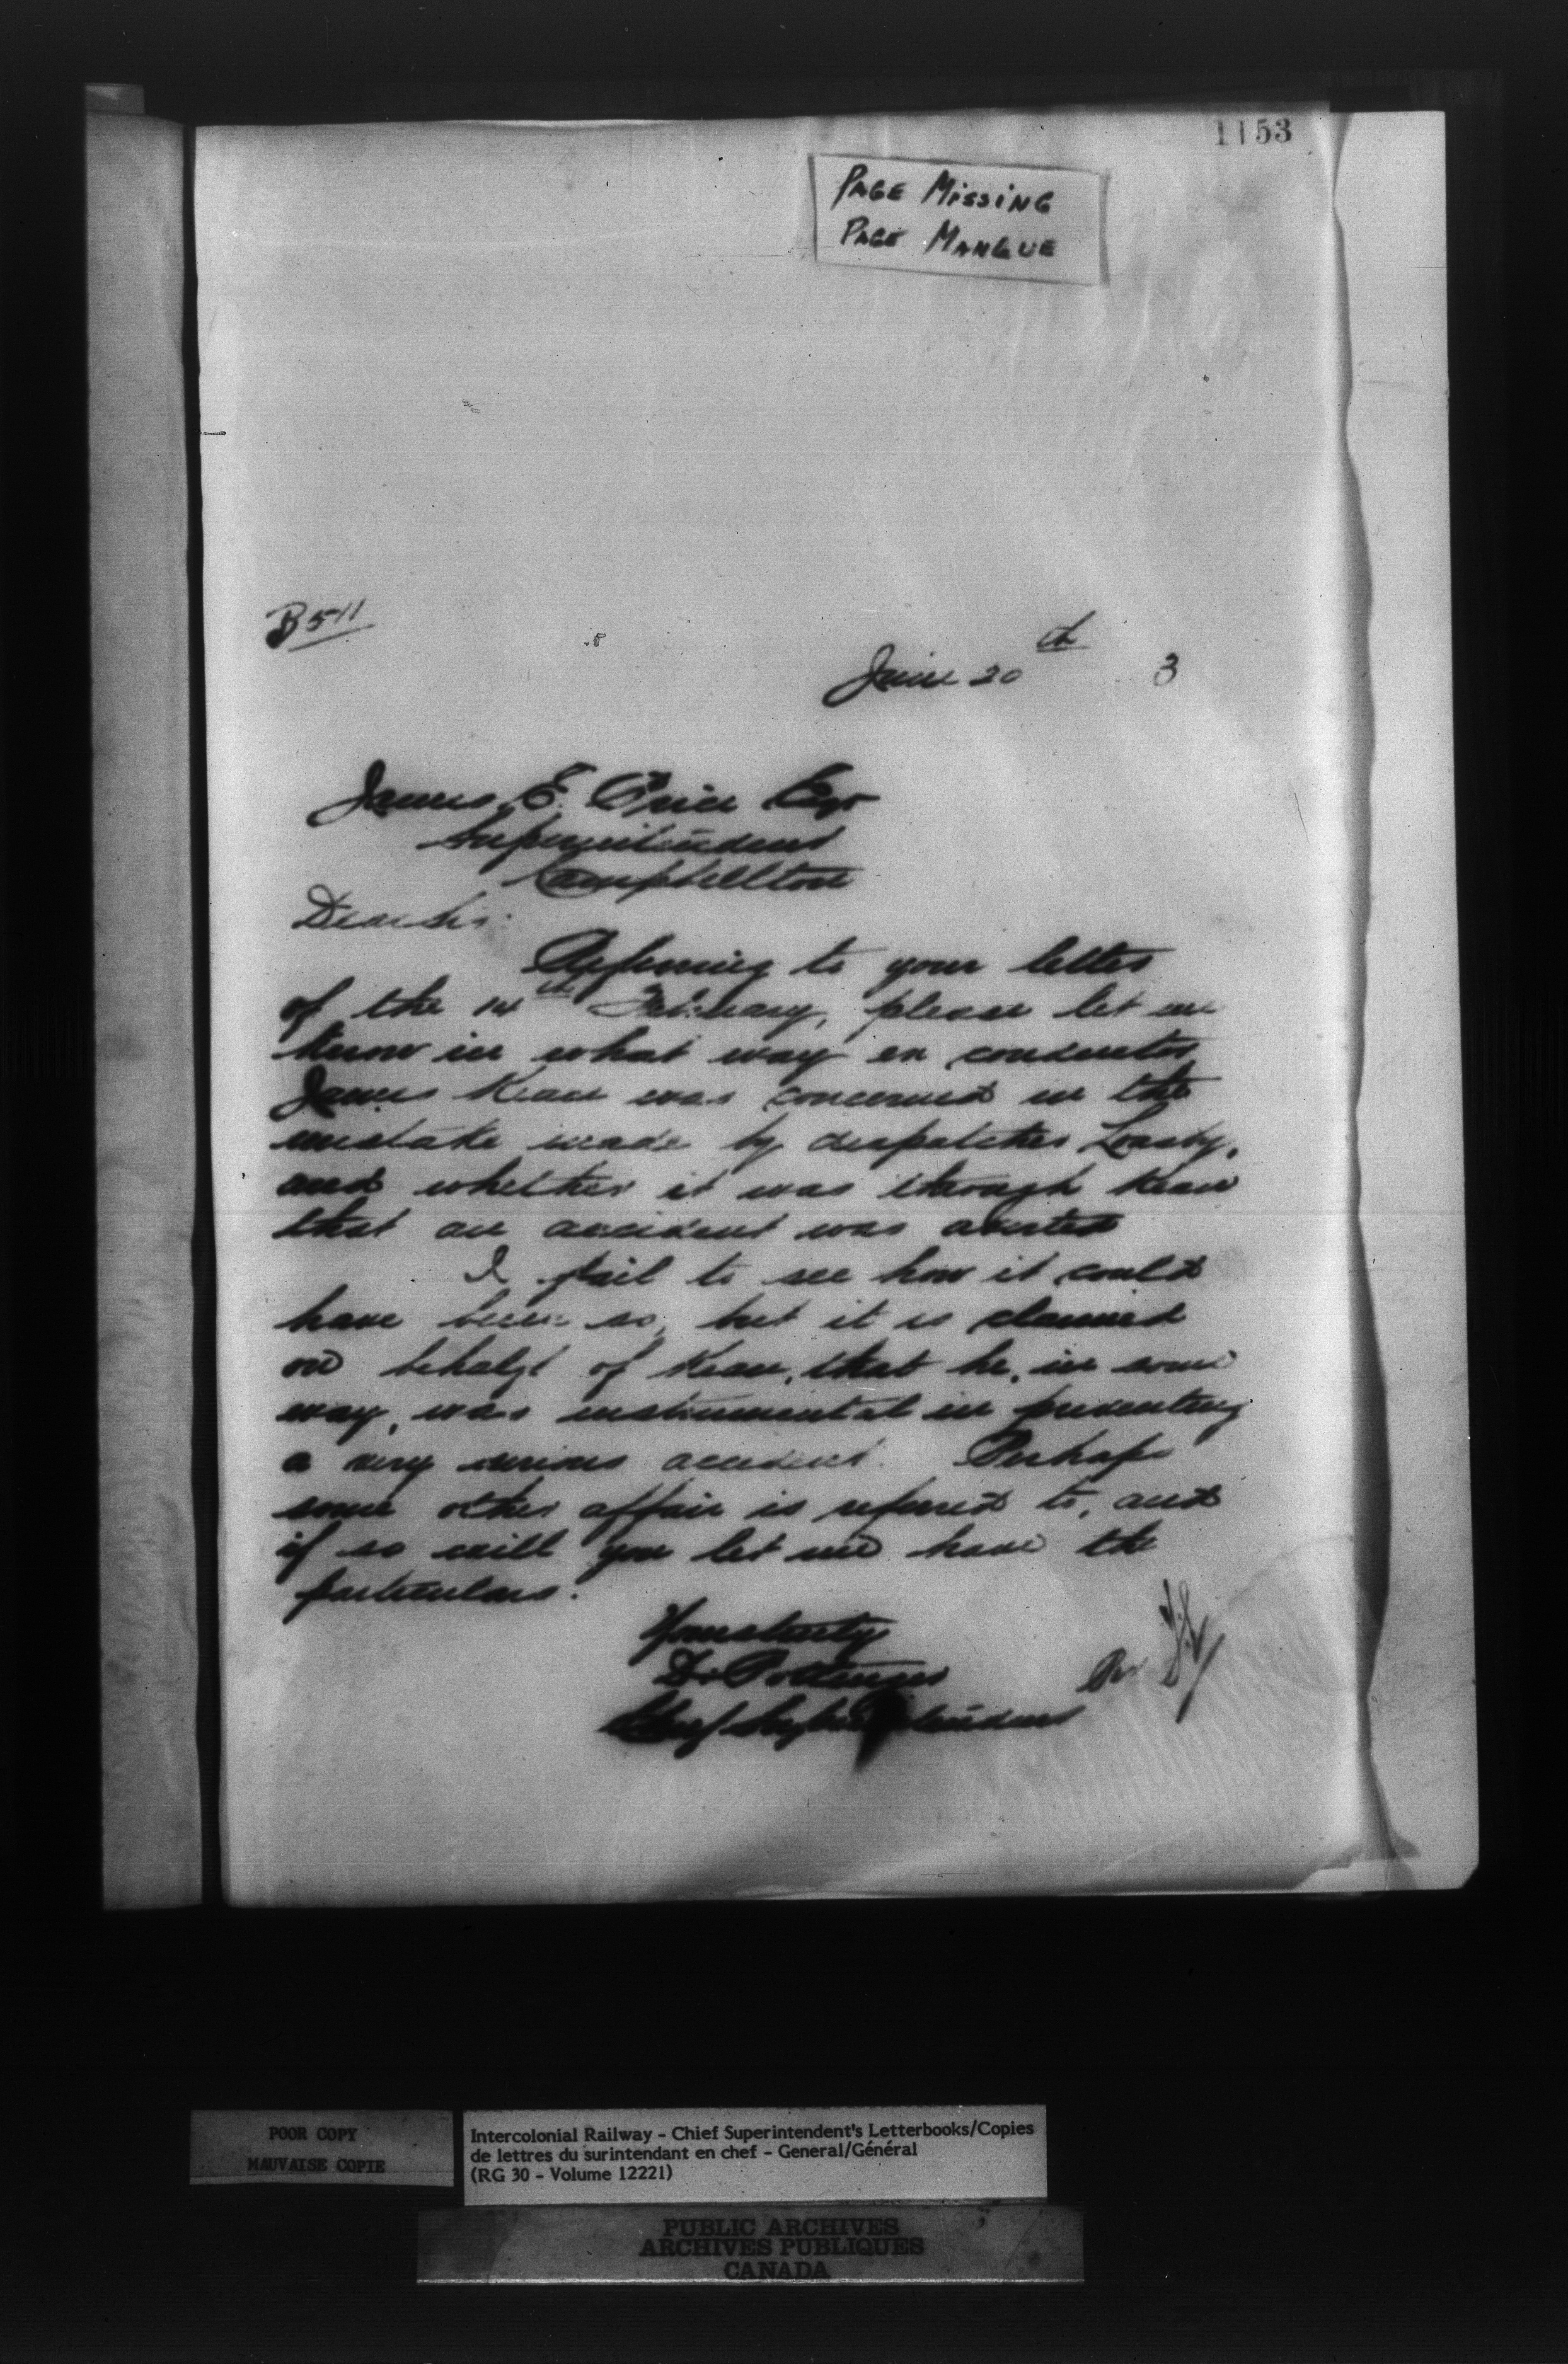 1153
PAGE MISSING
PAGE MANGUE
B 511
June 20th 3
James E. Price Esqr
Superintendent
Campbellton
Dear Sir:
Referring to your letter
of the 14th February, please let me
know in what way ex conductor
James Kean was concerned in the
mistake made by despatcher
and whether it was through Kean
that an accident was averted
I fail to see how it could
have been so, but it is claimed
on behalf of Kean, that he, in some
way, was instrumental in preventing
a very serious accident. Perhaps
some other affair is referred to, and
if so will you let me have the
particulars.
Yours truly
D. Pottinger
Chief Superintendent
Per
POOR COPY
MAUVAISE COPIE
Intercolonial Railway - Chief Superintendent's Letterbooks/Copies
de lettres du surintendant en chef - General/Général
(RG 30 - Volume 12221)
PUBLIC ARCHIVES
ARCHIVES PUBLIQUES
CANADA